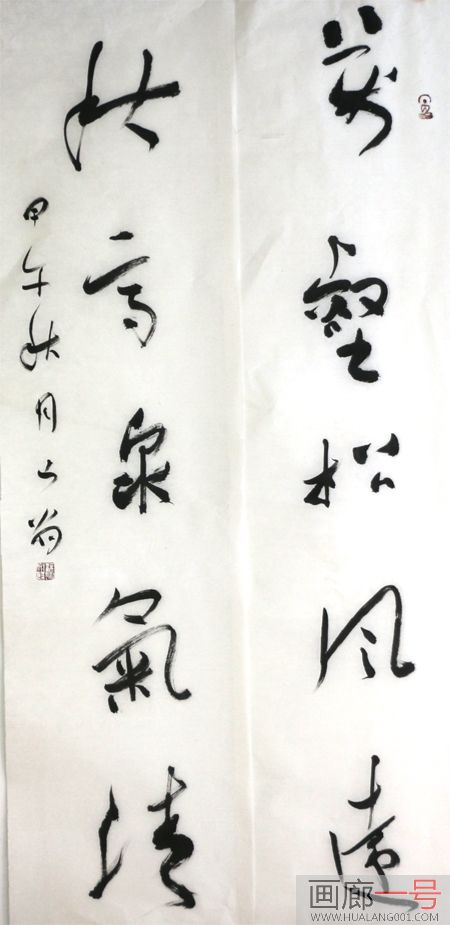 萬壑松风遠
秋高泉氣清
甲午秋月
画廊一号
WWW.HUALANG001.COM